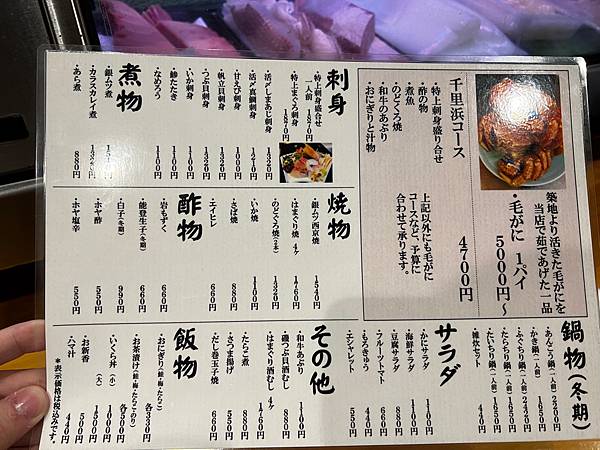 築地より活きた毛がにを
当店で茹であげた一品
・毛がに 1パイ
5000円～
千里浜コース
・特上刺身盛り合せ
・酢の物
・煮魚
・のどぐろ焼
・和牛のあぶり
・おにぎりと汁物
上記以外にも毛がに
コースなど、予算に
合わせて承ります。
4700円
刺身
・特上刺身盛合せ
一人前 1870円
・特上まぐろ刺身
1870円
・活〆しまあじ刺身 1320円
・活〆真鯛刺身 1210円
・甘えび刺身 1000円
・帆立貝刺身 1320円
・つぶ貝刺身 1320円
・いか刺身 1100円
・鯵たたき 1100円
・なめろう 1100円
煮物
・銀ムツ煮
・カラスカレイ煮
・あら煮 880円
焼物
・銀ムツ西京焼 1540円
・はまぐり焼 4ヶ 1760円
・のどぐろ焼(2本) 1320円
・いか焼 1100円
・さば焼 880円
・エイヒレ 660円
酢物
・岩もずく 660円
・能登生子(冬期) 660円
・白子(冬期) 990円
・ホヤ酢 550円
・ホヤ塩辛 550円
鍋物(冬期)
・あんこう鍋(一人前) 2200円
・かき鍋(一人前) 1650円
・ふぐちり鍋(一人前) 2420円
・たらちり鍋(一人前) 1650円
・たいちり鍋(一人前)
・雑炊セット 440円
サラダ
・かにサラダ 1100円
・海鮮サラダ 1100円
・豆腐サラダ 880円
・フルーツトマト 660円
・もろきゅう 550円
・エシャレット 550円
その他
・和牛あぶり
・磯つぶ貝酒むし 1100円
・はまぐり酒むし 4ヶ 1760円
・たらこ煮 880円
・さつま揚げ 550円
・だし巻玉子焼 660円
飯物
・おにぎり(鮭・梅・たらこ) 各330円
・お茶漬け(鮭・梅・たらこ・のり) 各550円
・いくら丼(小) 1000円
(大) 1500円
・お新香 500円
・ハマ汁 440円
*表示価格は税込みです。